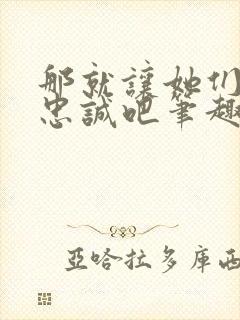 那就讓她们
忠誠吧筆趣
亞哈拉多庫西